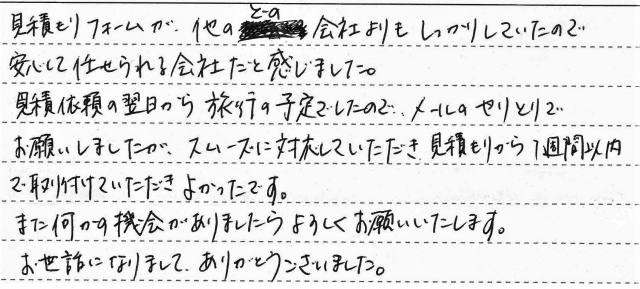 見積もりフォームが、他のどの会社よりもしっかりしていたので
安心して任せられる会社だと感じました。
見積依頼の翌日から旅行の予定でしたので、メールのやりとりで
お願いしましたが、スムーズに対応していただき見積もりから1週間以内
で取り付けていただきよかったです。
また何かの機会がありましたらよろしくお願いいたします。
お世話になりまして、ありがとうございました。